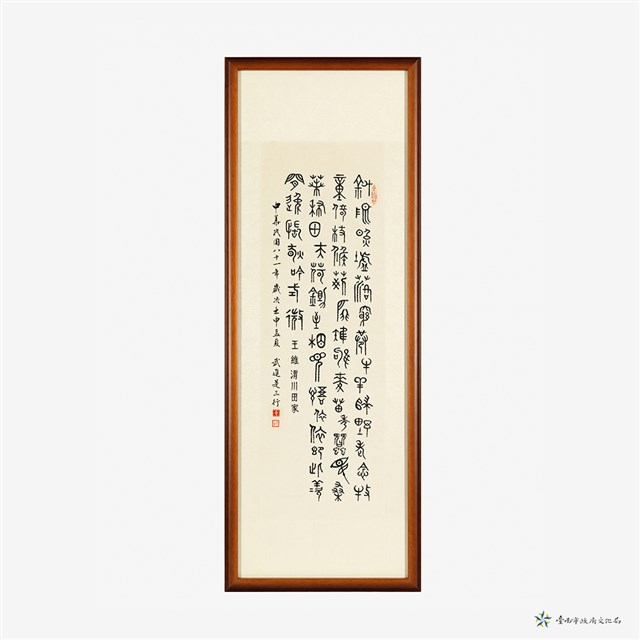 斜陽照墟落窮巷牛羊歸野老念牧
童倚杖候荊扉雉雊麥苗秀蠶眠桑
葉稀田夫荷鋤至相見語依依即此羨
閒逸悵然吟式微 王維渭川田家
中華民國八十一年歲次壬申孟夏 武進
臺南市政府文化局